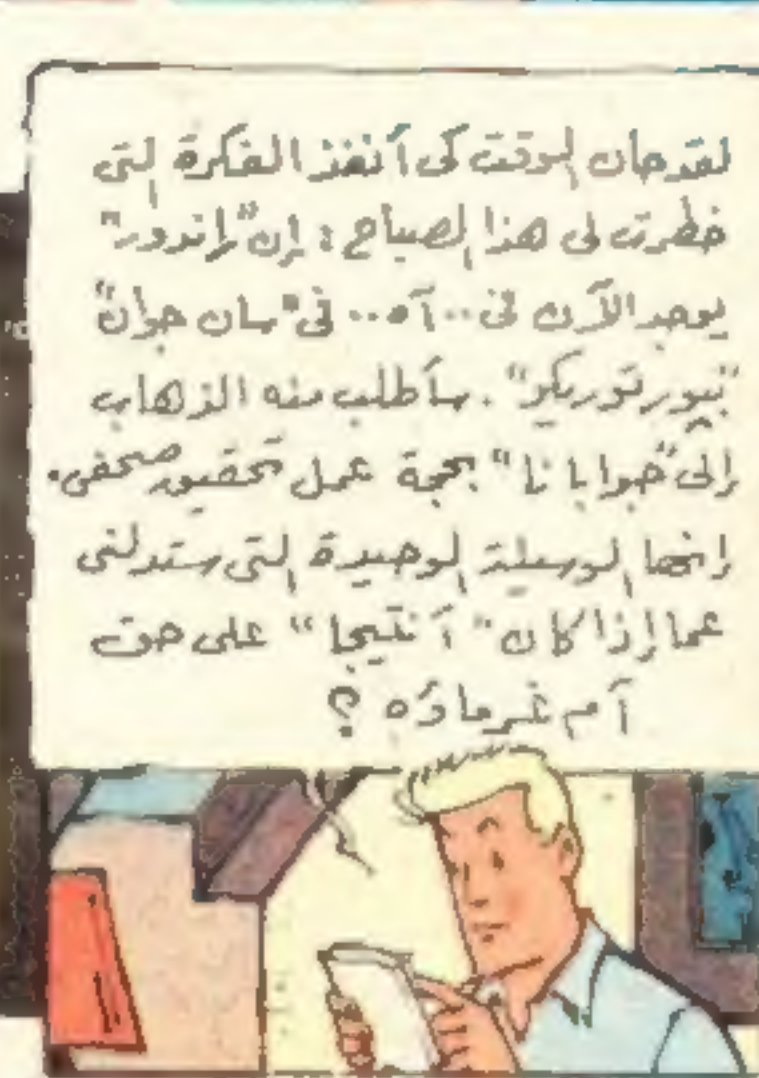 لقد حان الوقت كى أنفذ الفكرة التى
خطرت لى هذا الصباح : إن "راندور"
يوجد الآن فى .. آه .. فى "سان جوان"
"بيورتوريكو" . سأطلب منه الذهاب
إلى "جوايانا" بحجة عمل تحقيق صحفى .
إنها الوسيلة الوحيدة التى ستدلنى
عما إذا كان "آنتيجا" على حق
أم غرماؤه ؟